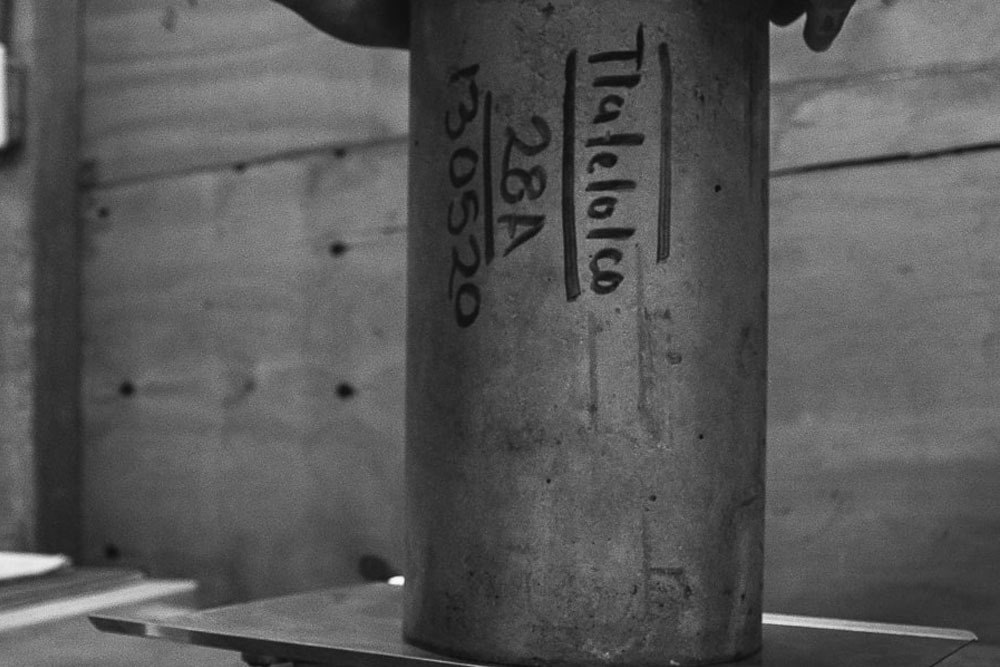 Tlatelolco
28A
130520